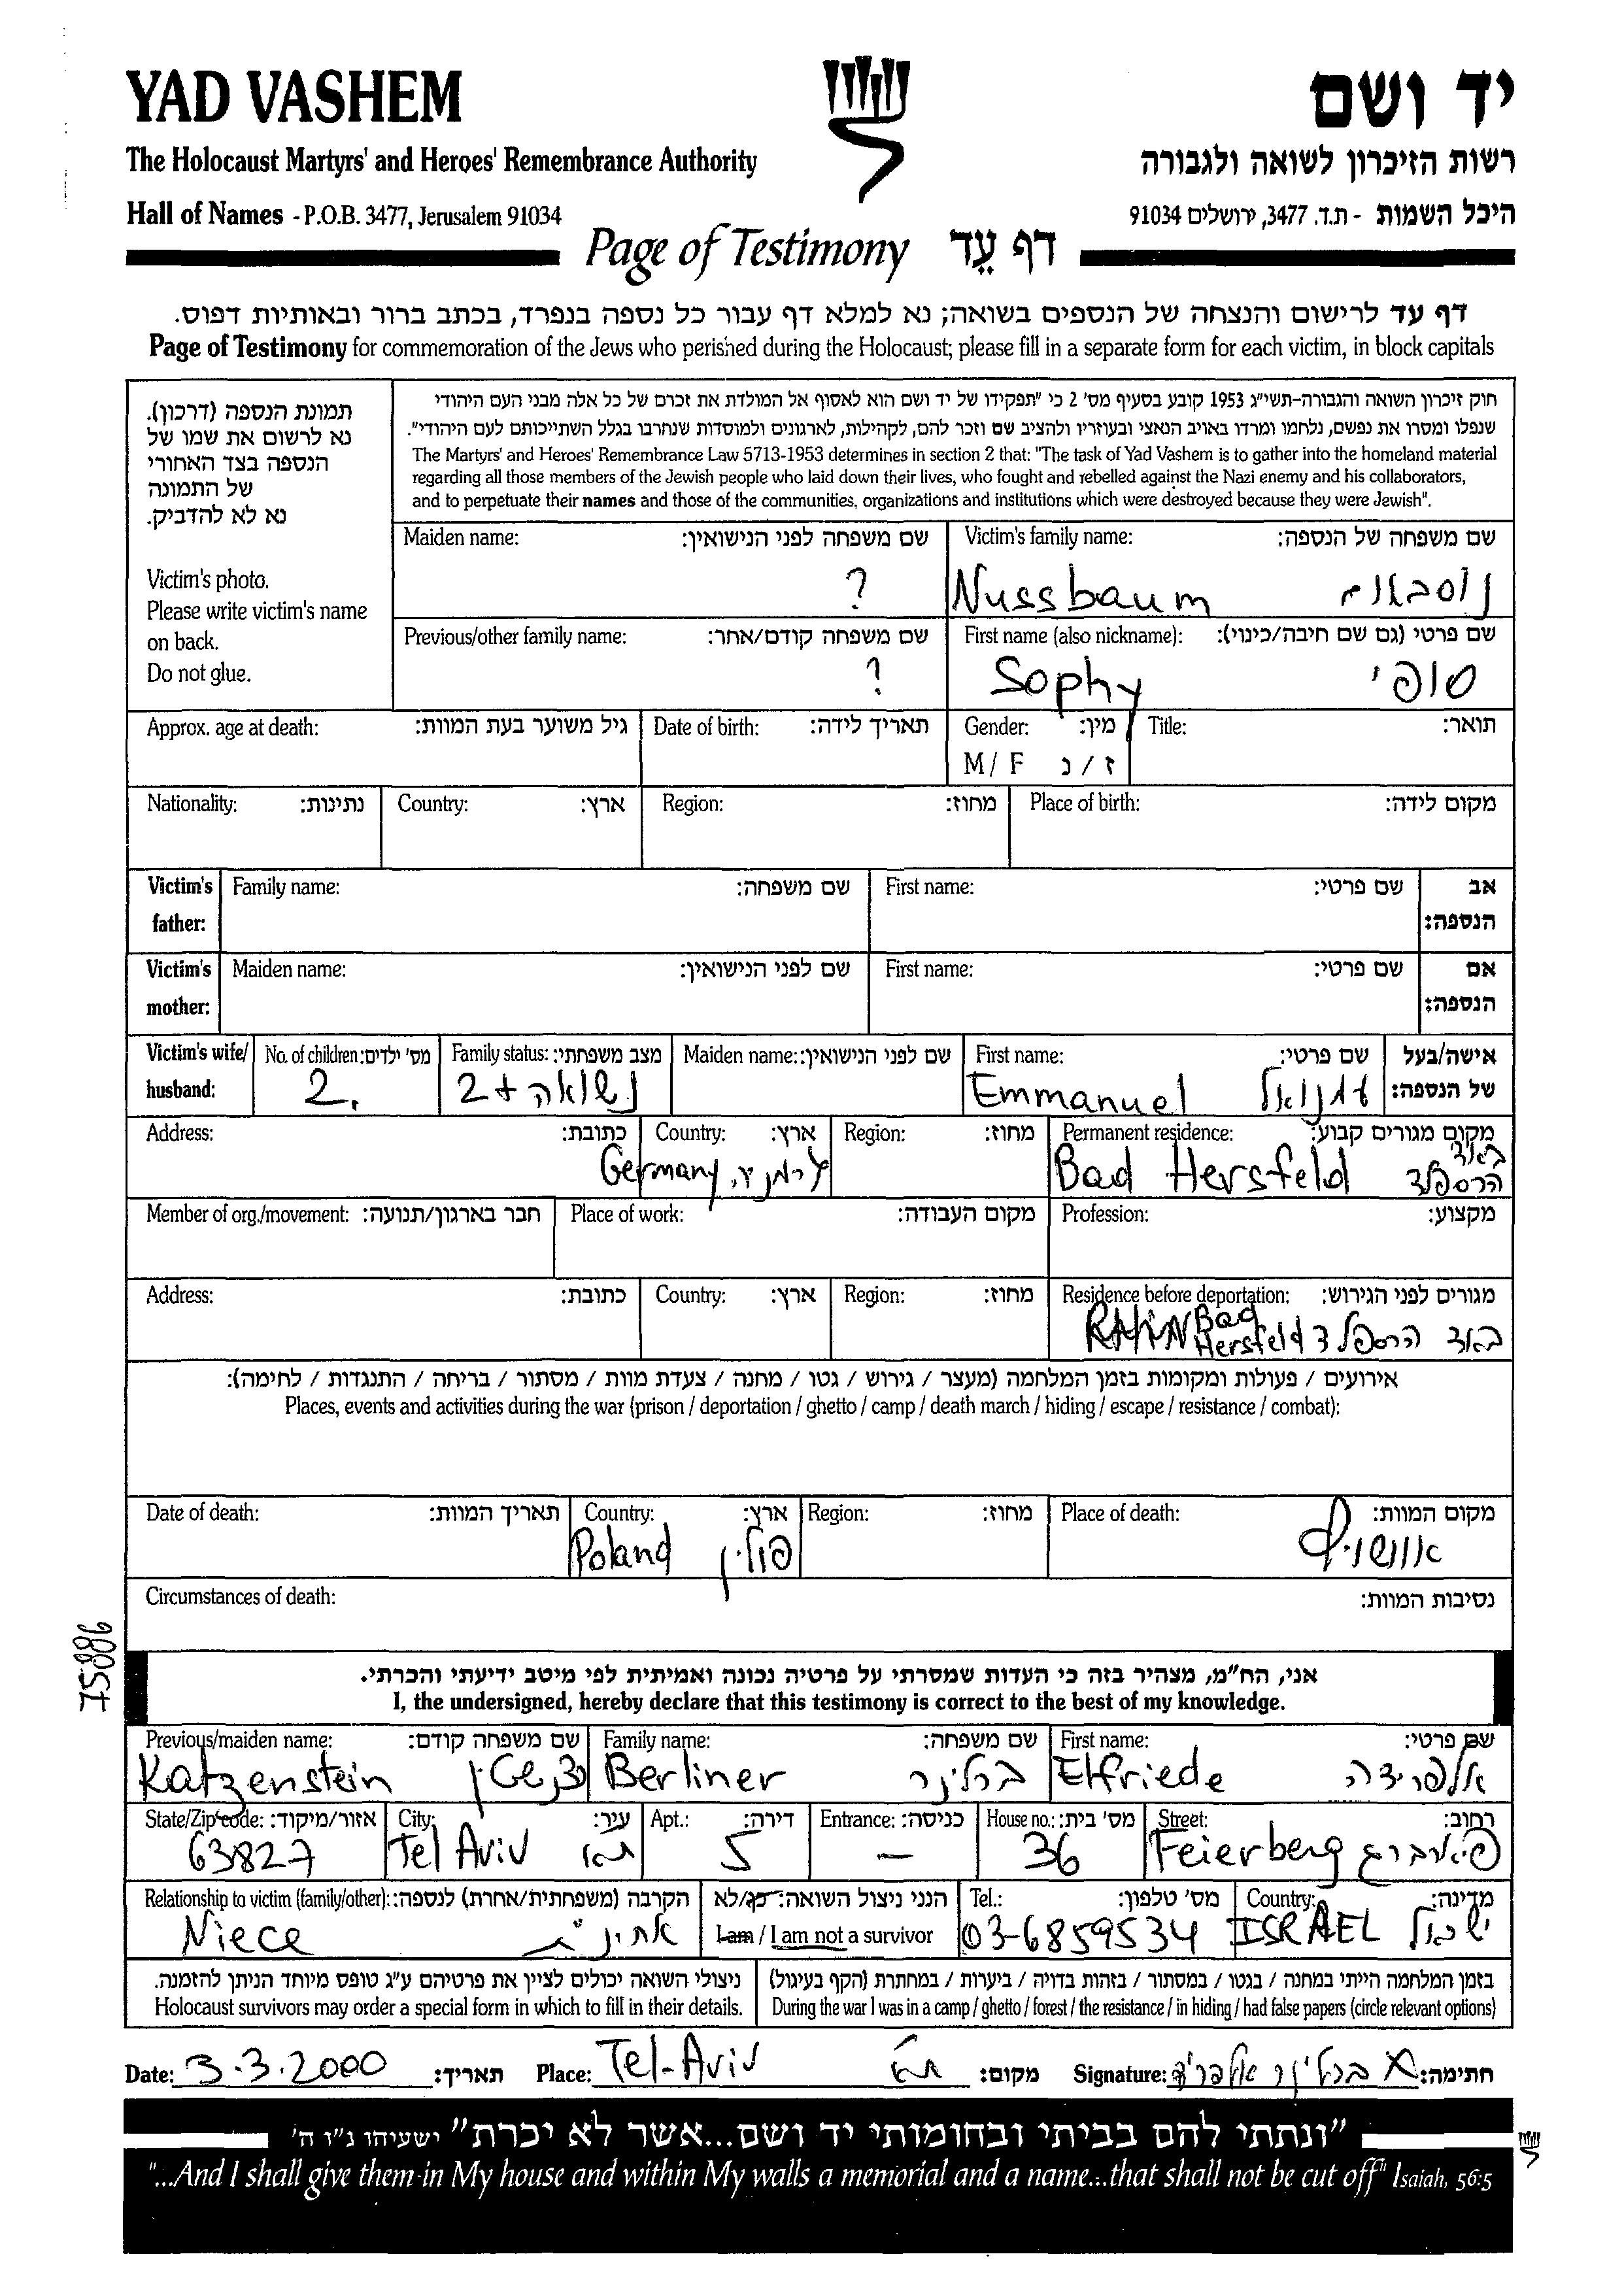 YAD VASHEM
יד ושם
The Holocaust Martyrs' and Heroes' Remembrance Authority
רשות הזיכרון לשואה ולגבורה
Hall of Names - P.O.B. 3477, Jerusalem 91034
היכל השמות - ת.ד. 3477, ירושלים 91034
Page of Testimony דף עֵד
דף עד לרישום והנצחה של הנספים בשואה; נא למלא דף עבור כל נספה בנפרד, בכתב ברור ובאותיות דפוס.
Page of Testimony for commemoration of the Jews who perished during the Holocaust; please fill in a separate form for each victim, in block capitals
תמונת הנספה (דרכון).
נא לרשום את שמו של
הנספה בצד האחורי
של התמונה
נא לא להדביק.
Victim's photo.
Please write victim's name
on back.
Do not glue.
חוק זיכרון השואה והגבורה-תשי"ג 1953 קובע בסעיף מס' 2 כי "תפקידו של יד ושם הוא לאסוף אל המולדת את זכרם של כל אלה מבני העם היהודי
שנפלו ומסרו את נפשם, נלחמו ומרדו באויב הנאצי ובעוזריו ולהציב שם וזכר להם, לקהילות, לארגונים ולמוסדות שנחרבו בגלל השתייכותם לעם היהודי".
The Martyrs' and Heroes' Remembrance Law 5713-1953 determines in section 2 that: "The task of Yad Vashem is to gather into the homeland material
regarding all those members of the Jewish people who laid down their lives, who fought and rebelled against the Nazi enemy and his collaborators,
and to perpetuate their names and those of the communities, organizations and institutions which were destroyed because they were Jewish".
Maiden name: שם משפחה לפני הנישואין: Victim's family name: שם משפחה של הנספה:
? Nussbaum נוסבאום
Previous/other family name: שם משפחה קודם/אחר: First name (also nickname): שם פרטי (גם שם חיבה/כינוי):
? Sophy סופי
Approx. age at death: גיל משוער בעת המוות: Date of birth: תאריך לידה: Gender: מין: Title: תואר:
M / F ז / נ
Nationality: נתינות: Country: ארץ: Region: מחוז: Place of birth: מקום לידה:
Victim's father: Family name: שם משפחה: First name: שם פרטי: אב הנספה:
Victim's mother: Maiden name: שם לפני הנישואין: First name: שם פרטי: אם הנספה:
Victim's wife/ husband: No. of children: מס' ילדים: Family status: מצב משפחתי: Maiden name: שם לפני הנישואין: First name: שם פרטי: אישה/בעל של הנספה:
2. נשואה + 2 Emmanuel עמנואל
Address: כתובת: Country: ארץ: Region: מחוז: Permanent residence: מקום מגורים קבוע:
Germany, גרמניה Bad Hersfeld באד הרספלד
Member of org./movement: חבר בארגון/תנועה: Place of work: מקום העבודה: Profession: מקצוע:
Address: כתובת: Country: ארץ: Region: מחוז: Residence before deportation: מגורים לפני הגירוש:
Bad Hersfeld באד הרספלד
אירועים / פעולות ומקומות בזמן המלחמה (מעצר / גירוש / גטו / מחנה / צעדת מוות / מסתור / בריחה / התנגדות / לחימה):
Places, events and activities during the war (prison / deportation / ghetto / camp / death march / hiding / escape / resistance / combat):
Date of death: תאריך המוות: Country: ארץ: Region: מחוז: Place of death: מקום המוות:
Poland פולין אושוויץ
Circumstances of death: נסיבות המוות:
75886
אני, הח"מ, מצהיר בזה כי העדות שמסרתי על פרטיה נכונה ואמיתית לפי מיטב ידיעתי והכרתי.
I, the undersigned, hereby declare that this testimony is correct to the best of my knowledge.
Previous/maiden name: שם משפחה קודם: Family name: שם משפחה: First name: שם פרטי:
Katzenstein Berliner ברלינר Elfriede אלפרידה
State/Zip code: אזור/מיקוד: City: עיר: Apt.: דירה: Entrance: כניסה: House no.: מס' בית: Street: רחוב:
63827 Tel Aviv תא 5 — 36 Feierberg פיארברג
Relationship to victim (family/other): הקרבה (משפחתית/אחרת) לנספה: הנני ניצול השואה: כן/לא Tel.: מס' טלפון: Country: מדינה:
Niece אחינית I am / I am not a survivor 03-6859534 ISRAEL ישראל
ניצולי השואה יכולים לציין את פרטיהם ע"ג טופס מיוחד הניתן להזמנה.
Holocaust survivors may order a special form in which to fill in their details.
בזמן המלחמה הייתי במחנה / בגטו / במסתור / בזהות בדויה / ביערות / במחתרת (הקף בעיגול)
During the war I was in a camp / ghetto / forest / the resistance / in hiding / had false papers (circle relevant options)
Date: 3.3.2000 תאריך: Place: Tel-Aviv תא מקום: Signature: ברלינר חתימה:
"ונתתי להם בביתי ובחומותי יד ושם...אשר לא יכרת" ישעיהו נ"ו ה'
"...And I shall give them in My house and within My walls a memorial and a name...that shall not be cut off" Isaiah, 56:5